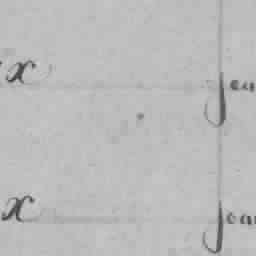 x jea
x jea